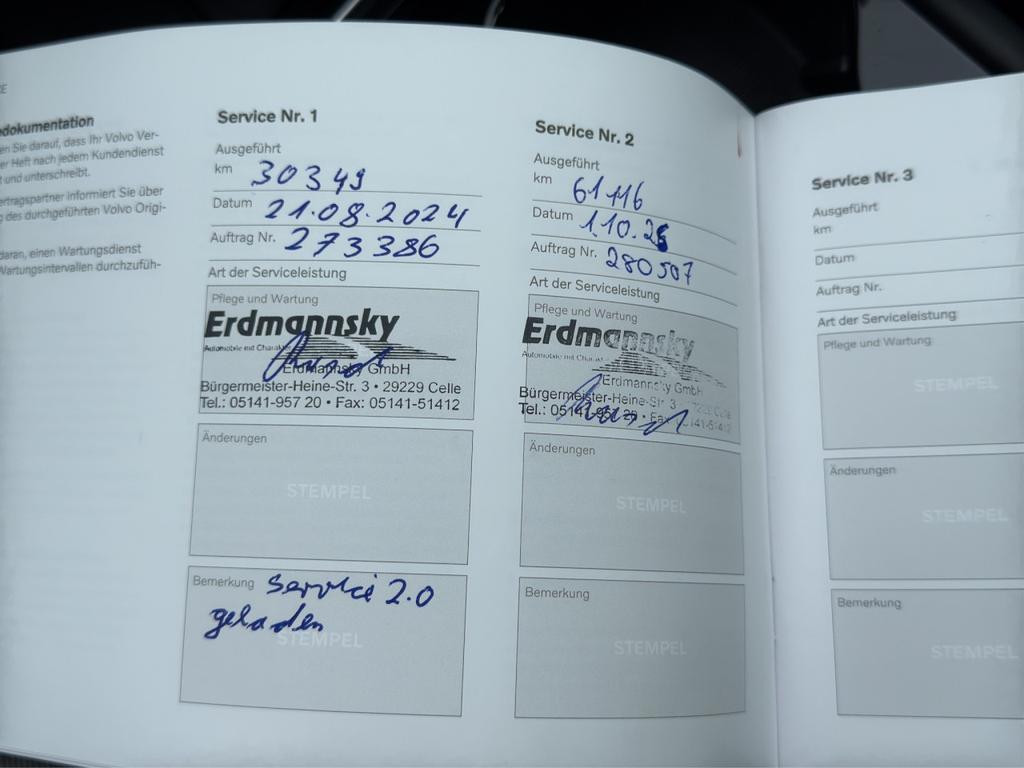 edokumentation
en Sie darauf, dass Ihr Volvo Ver-
er Heft nach jedem Kundendienst
t und unterschreibt.
ertragspartner informiert Sie über
g des durchgeführten Volvo Origi-
daran, einen Wartungsdienst
Wartungsintervallen durchzufüh-
Service Nr. 1
Ausgeführt
km 30349
Datum 21.08.2024
Auftrag Nr. 273386
Art der Serviceleistung
Pflege und Wartung
Erdmannsky
Automobile mit Charakter
Erdmannsky GmbH
Bürgermeister-Heine-Str. 3 • 29229 Celle
Tel.: 05141-957 20 • Fax: 05141-51412
Änderungen
STEMPEL
Bemerkung Service 2.0
geladen
STEMPEL
Service Nr. 2
Ausgeführt
km 61116
Datum 1.10.25
Auftrag Nr. 280507
Art der Serviceleistung
Pflege und Wartung
Erdmannsky
Automobile mit Charak
Erdmannsky GmbH
Bürgermeister-Heine-Str. 3 29229 Celle
Tel.: 05141-957 20 • Fax: 05141-51412
Änderungen
STEMPEL
Bemerkung
STEMPEL
Service Nr. 3
Ausgeführt
km
Datum
Auftrag Nr.
Art der Serviceleistung
Pflege und Wartung
STEMPEL
Änderungen
STEMPEL
Bemerkung
STEMPEL